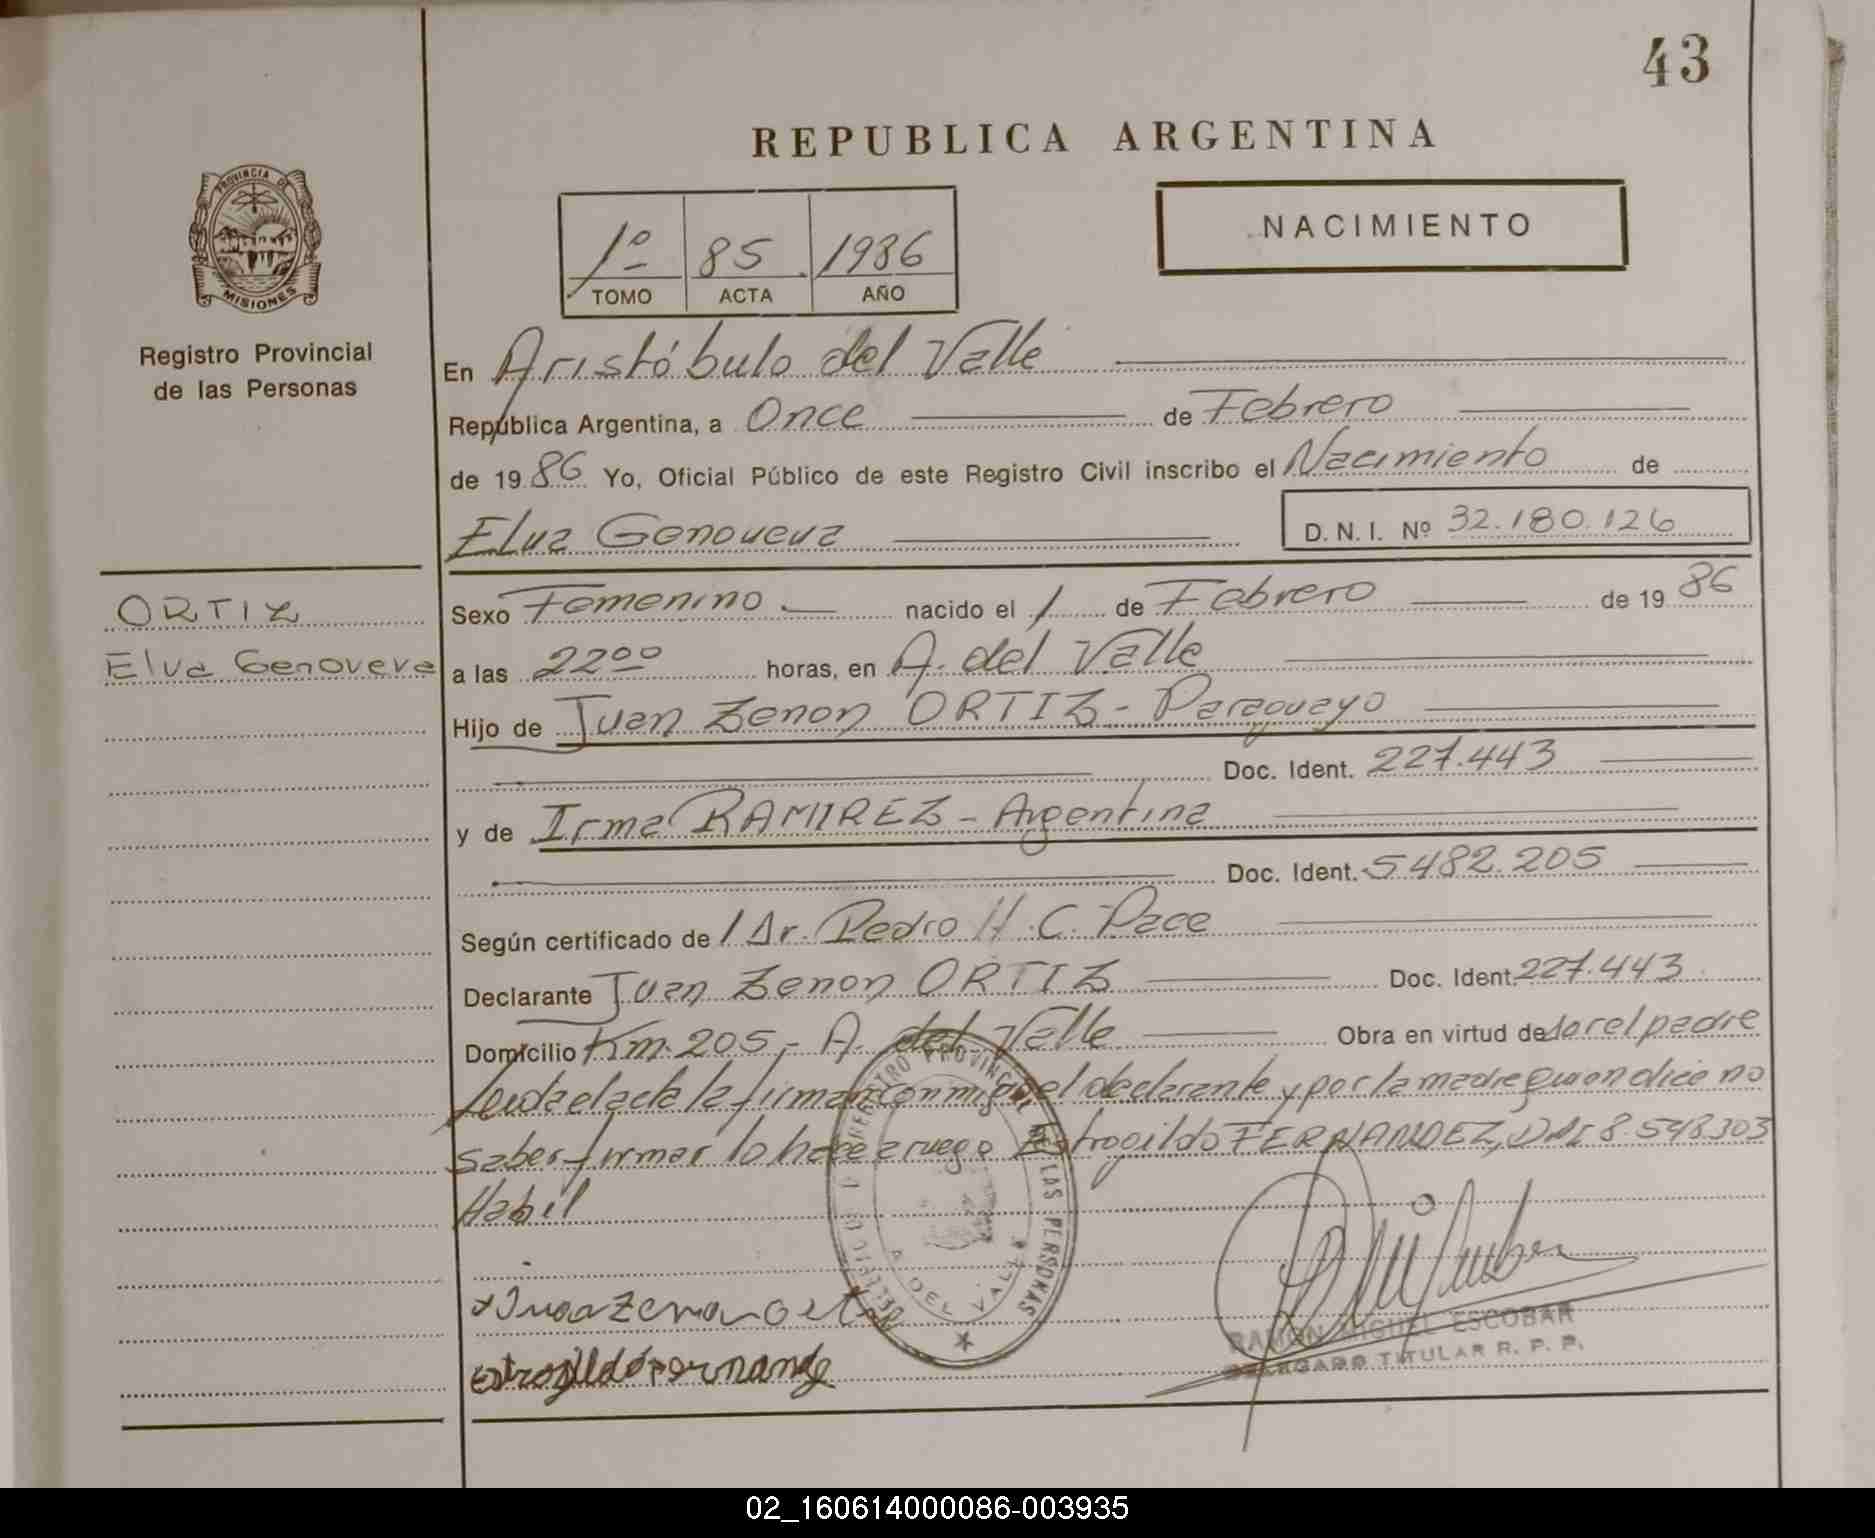 43
REPUBLICA ARGENTINA
PROVINCIA DE
MISIONES
Registro Provincial
de las Personas
1º 85 1986
TOMO ACTA AÑO
NACIMIENTO
En Aristóbulo del Valle
República Argentina, a Once de Febrero
de 1986 Yo, Oficial Público de este Registro Civil inscribo el Nacimiento de
Elva Genoveva D.N.I. Nº 32.180.126
ORTIZ
Elva Genoveva
Sexo Femenino nacido el 1 de Febrero de 1986
a las 22ºº horas, en A. del Valle
Hijo de Juan Zenon ORTIZ - Paraguayo
Doc. Ident. 227.443
y de Irma RAMIREZ - Argentina
Doc. Ident. 5482.205
Según certificado de / Dr. Pedro H. C. Pace
Declarante Juan Zenon ORTIZ Doc. Ident. 227.443
Domicilio Km. 205 - A. del Valle Obra en virtud de ser el padre
Leida el acta la firman conmigo el declarante y por la madre quien dice no
saber firmar lo hace a ruego Estrogildo FERNANDEZ, DNI 8 548303
Habil
REGISTRO PROVINCIAL DE LAS PERSONAS
A DEL VALLE
RAMON MIGUEL ESCOBAR
DELEGADO TITULAR R. P. P.
02_160614000086-003935